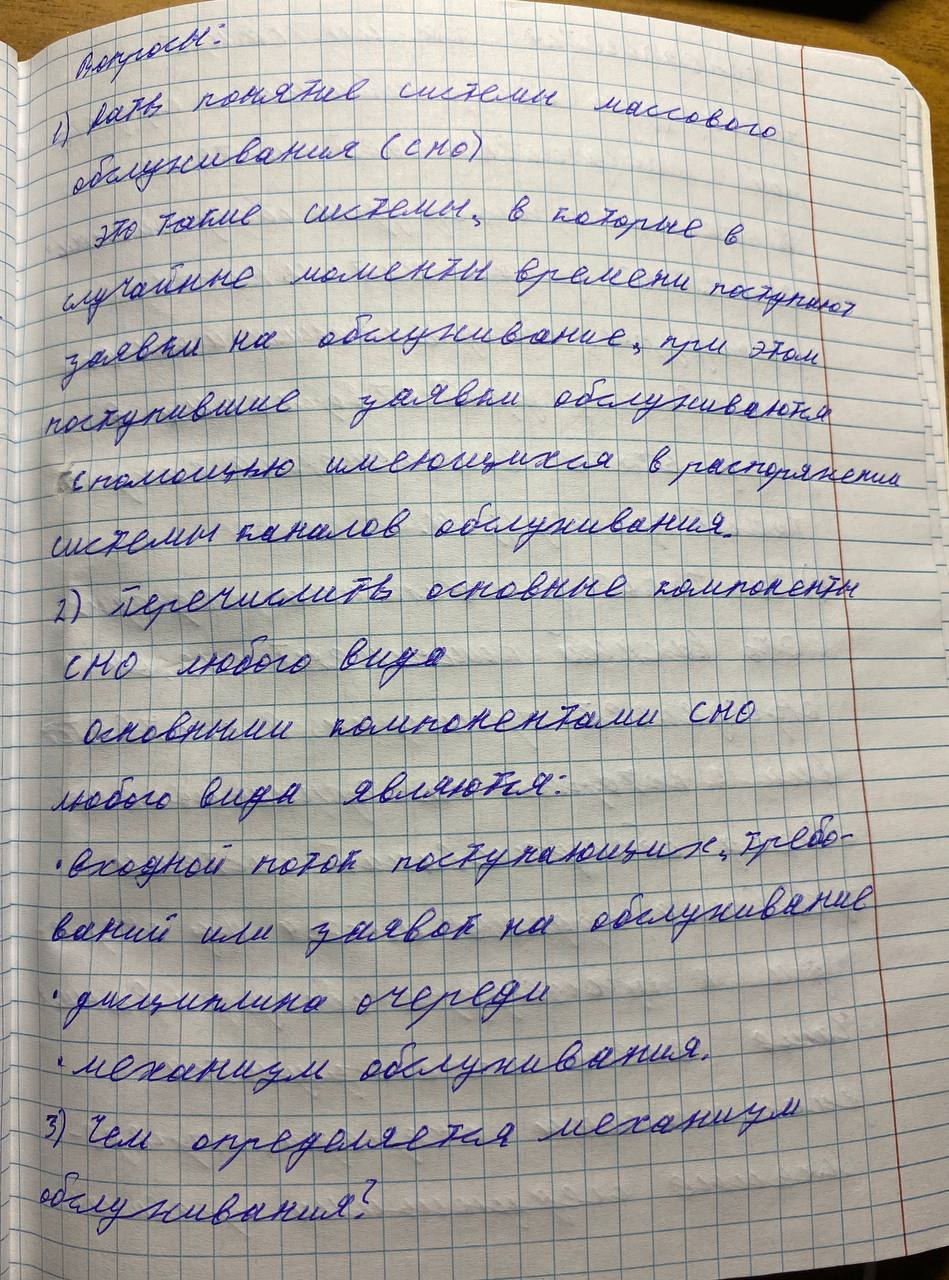 Вопросы:
1) Дать понятие системы массового
обслуживания (СМО)
это такие системы, в которые в
случайные моменты времени поступают
заявки на обслуживание, при этом
поступившие заявки обслуживаются
с помощью имеющихся в распоряжении
системы каналов обслуживания.
2) Перечислить основные компоненты
СМО любого вида
Основными компонентами СМО
любого вида являются:
• входной поток поступающих, требо-
ваний или заявок на обслуживание
• дисциплина очереди
• механизм обслуживания.
3) Чем определяется механизм
обслуживания?